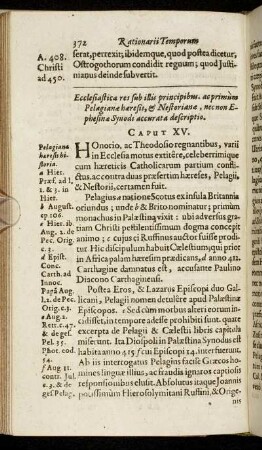 372 Rationarii Temporum
A. 408.
Christi
ad 450.
serat, perrexit; ibidemque, quod postea dicetur,
Ostrogothorum condidit regnum; quod Justi-
nianus deinde subvertit.
Ecclesiastica res sub illis principibus. ac primùm
Pelagiana hæresis, & Nestoriana, necnon E-
phesina Synodi accurata descriptio.
CAPUT XV.
Pelagiana
hæresis hi-
storia.
a Hier.
Præf. ad l.
1. & 3. in
Hier.
b August.
ep 106.
c Hier. ib.
Aug. 2. de
Pec. Orig.
c. 3.
d Epist.
Conc.
Carth. ad
Innoc.
Papā Aug
l. 2. de Pec.
Orig. c. 3.
e Aug. 2.
Retr. c. 47.
& de ges.
Pel. 35.
Phot. cod.
54.
f Aug. 11.
cont. Jul.
c. 3. & de
ges Pelag.
HOnorio, ac Theodosio regnantibus, varii
in Ecclesia motus extitêre, celeberrimique
cum hæreticis Catholicarum partium conflic-
tus, ac contra duas præsertim hæreses, Pelagii,
& Nestorii, certamen fuit.
Pelagius a natione Scotus ex insula Britannia
oriundus; unde b & Brito nominatur; primùm
monachus in Palæstina vixit: ubi adversus gra-
tiam Christi pestilentissimum dogma concepit
animo; c cujus ei Ruffinus auctor fuisse prodi-
tur. Hic discipulum habuit Cælestium, qui prior
in Africa palam hæresim prædicans, d anno 412.
Carthagine damnatus est, accusante Paulino
Diacono Carthaginensi.
Postea Eros, & Lazarus Episcopi duo Gal-
licani, Pelagii nomen detulêre apud Palæstinæ
Episcopos. e Sed cùm morbus alteri eorum in-
cidisset, in tempore adesse prohibiti sunt. quare
excerpta de Pelagii & Cælestii libris capitula
miserunt. Ita Diospoli in Palæstina Synodus est
habita anno 415 f cui Episcopi 14. interfuerunt.
Ab iis interrogatus Pelagius facilè Græcos ho-
mines linguæ illius, ac fraudis ignaros captiosis
responsionibus elusit. Absolutus itaque Joannis
potissimùm Hierosolymitani Rufini, & Orige-
nis